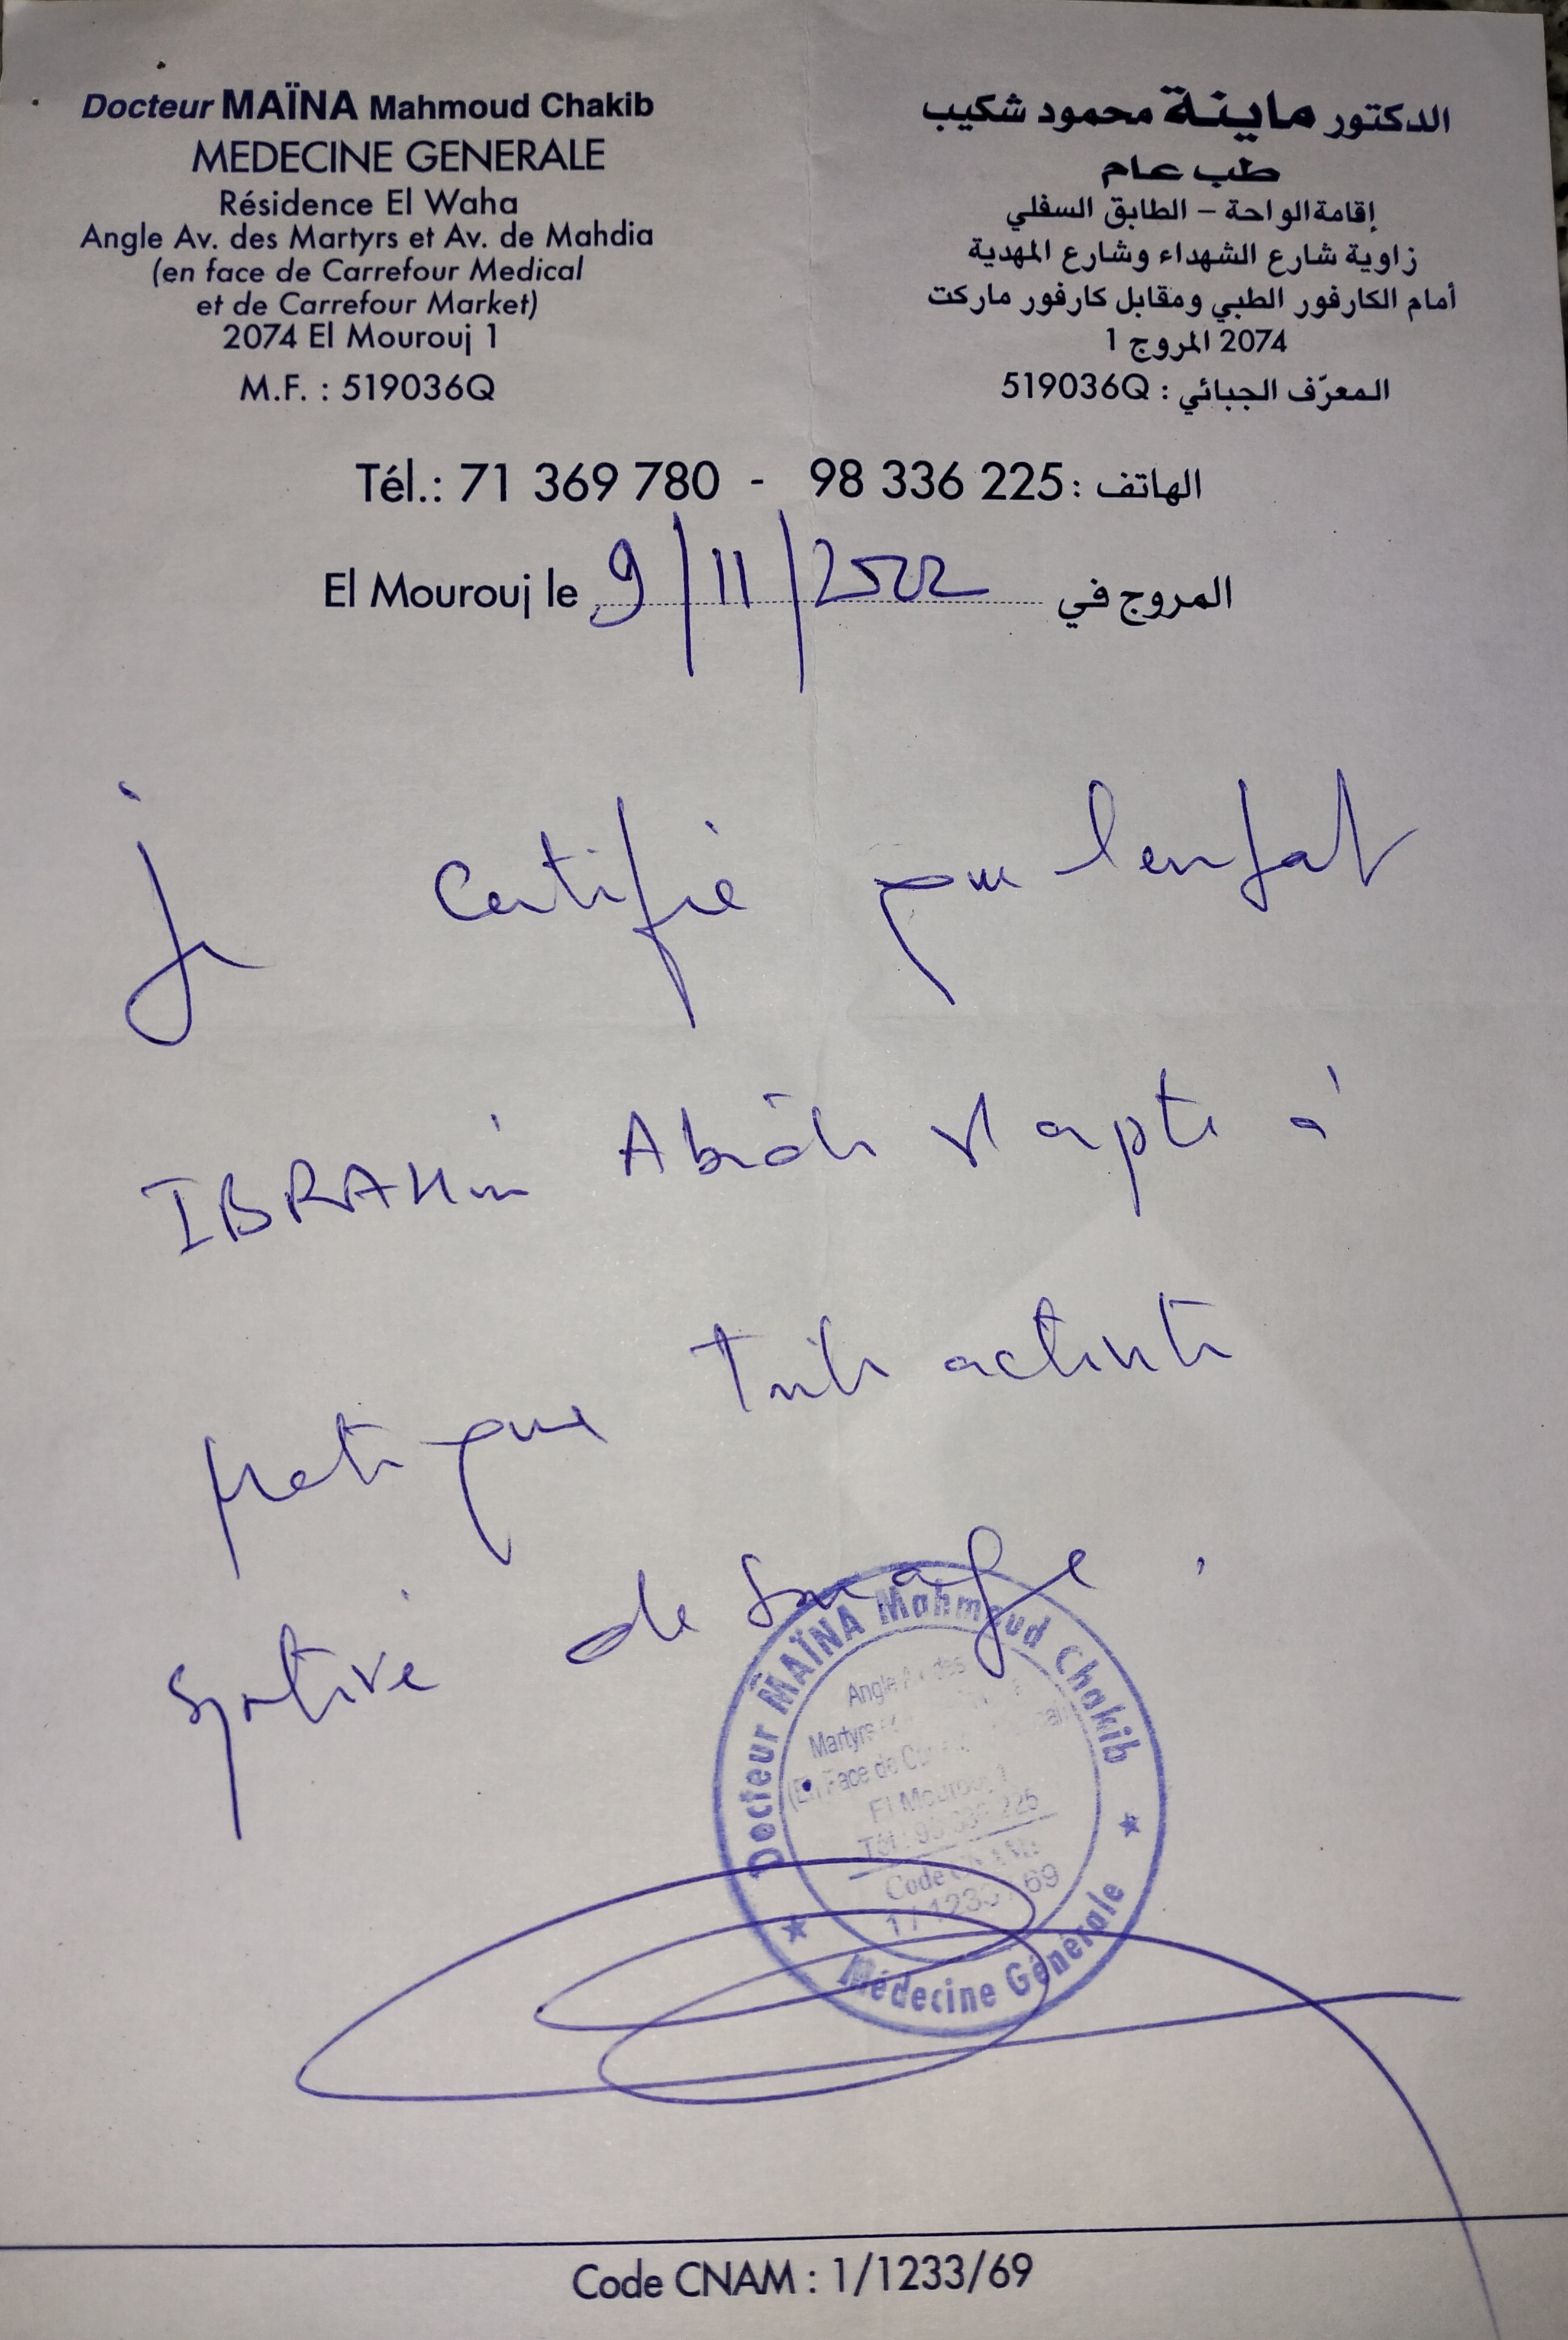 Docteur MAÏNA Mahmoud Chakib
MEDECINE GENERALE
Résidence El Waha
Angle Av. des Martyrs et Av. de Mahdia
(en face de Carrefour Medical
et de Carrefour Market)
2074 El Mourouj 1
M.F. : 519036Q
الدكتور ماينة محمود شكيب
طب عام
إقامة الواحة – الطابق السفلي
زاوية شارع الشهداء وشارع المهدية
أمام الكارفور الطبي ومقابل كارفور ماركت
2074 المروج 1
المعرّف الجبائي : 519036Q
Tél.: 71 369 780 - 98 336 225 : الهاتف
El Mourouj le 9/11/2022 المروج في
je certifie que l'enfant
IBRAHim est apte à
pratique toute activité
sportive de son age.
Docteur MAÏNA Mahmoud Chakib
Angle Av des
Martyrs
(En Face de
El Mourouj 1
Tél : 98 336 225
Code CNAM
1 / 1233 / 69
Médecine Générale
Code CNAM : 1/1233/69